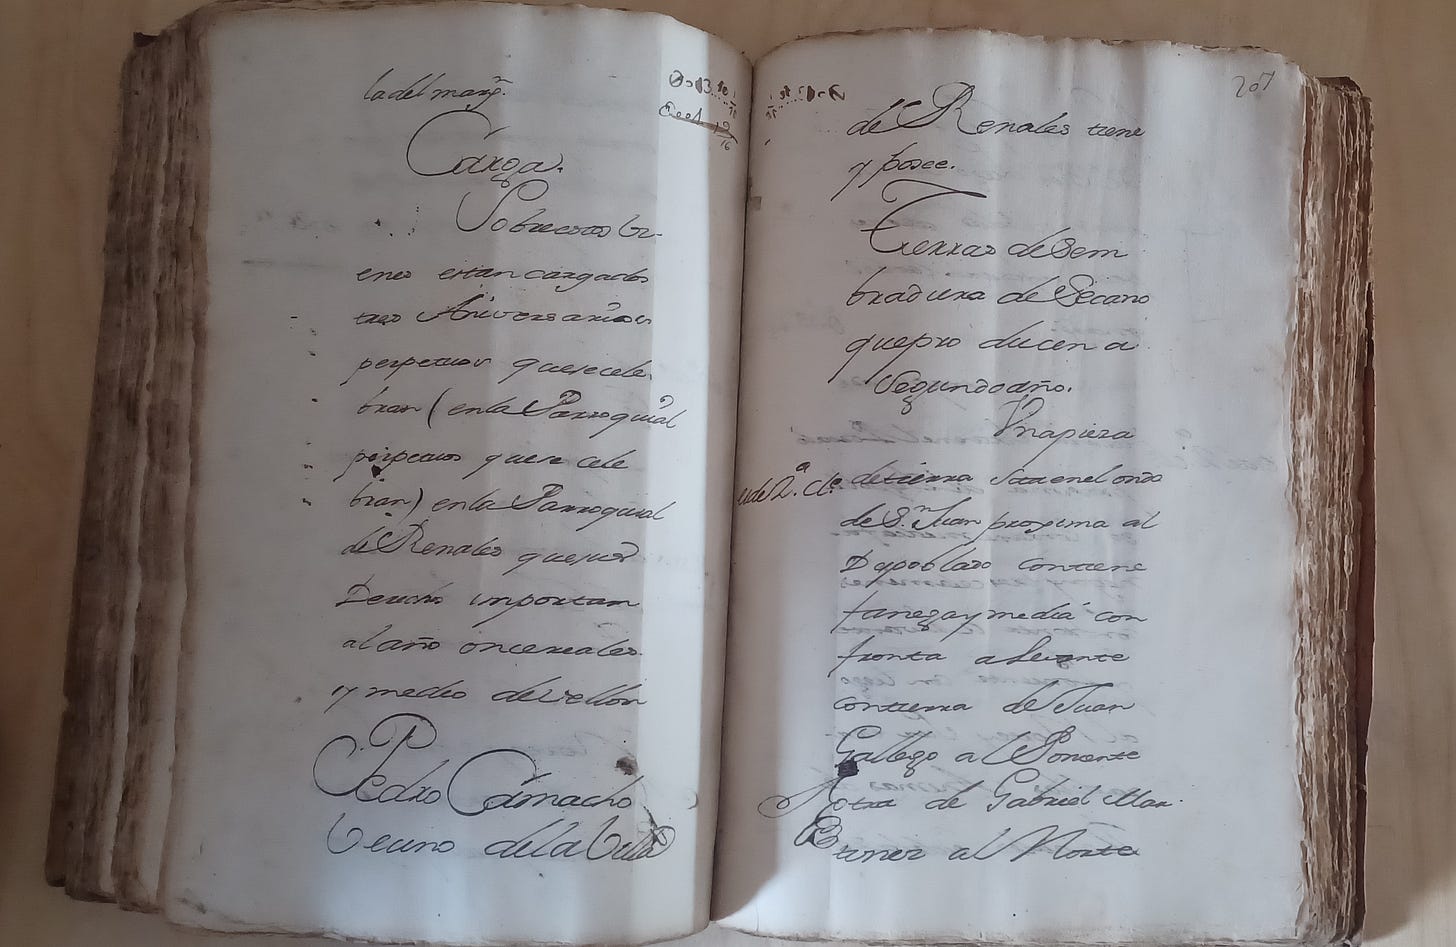 la del marg.ⁿ
Carga.
Sobre estos bi-
enes estan cargados
tres Aniversarios
perpetuos que se cele-
bran (en la Parroquial
perpetuos que se cele
bran) en la Parroquial
de Renales que por
Derecho importan
al año once reales
y medio de vellon
Pedro Camacho
Vecino de la Villa
207
de Renales tiene
y posee.
Tierras de Sem
bradura de Secano
que pro ducen a
Segundo año.
Una pieza
es de 2.ª cl.e de tierra sita en el ondo
de S.n Juan proxima al
Dspoblado contiene
fanega y media con
fronta a Levante
con tierra de Juan
Gallego a el Ponente
otra de Gabriel Mar-
tinez al Norte